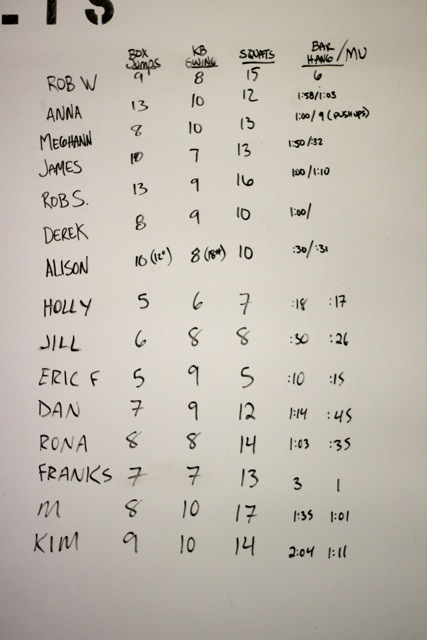 ETS
BOX JUMPS KB SWING SQUATS BAR HANG/MU
ROB W 9 8 15 6
ANNA 13 10 12 1:58/1:03
MEGHANN 8 10 13 1:00/9 (PUSHUPS)
JAMES 10 7 13 1:50/:32
ROB S. 13 9 16 1:00/1:10
DEREK 8 9 10 1:00/
ALISON 10 (12") 8 (18#) 10 :30/:31
HOLLY 5 6 7 :18 :17
JILL 6 8 8 :30 :26
ERIC F 5 9 5 :10 :15
DAN 7 9 12 1:14 :45
RONA 8 8 14 1:03 :35
FRANKS 7 7 13 3 1
M 8 10 17 1:35 1:01
KIM 9 10 14 2:04 1:11